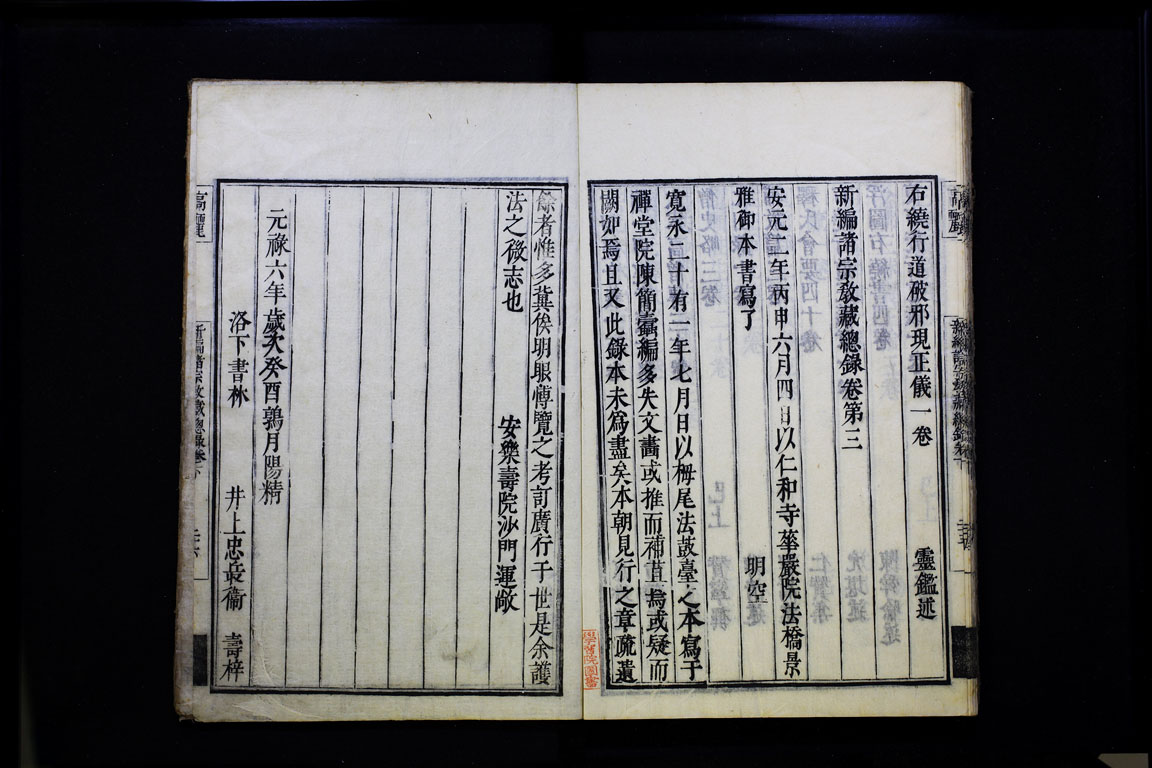 右繞行道破邪現正儀一卷 靈鑑述
新編諸宗敎藏總錄卷第三
安元二年丙申六月四日以仁和寺華嚴院法橋景
雅御本書寫了 明空
寛永二十有一年七月日以栂尾法鼓臺之本寫于
禪堂院陳簡蠹編多失文畵或推而補苴焉或疑而
闕如焉且又此錄本未爲盡矣本朝見行之章疏遺
餘者惟多冀俟明眼愽覽之考訂廣行于世是余護
法之微志也 安樂壽院沙門運敞
元祿六年歲次癸酉鶉月陽精
洛下書林 井上忠兵衞 壽梓
高麗
新編諸宗敎藏總錄卷下